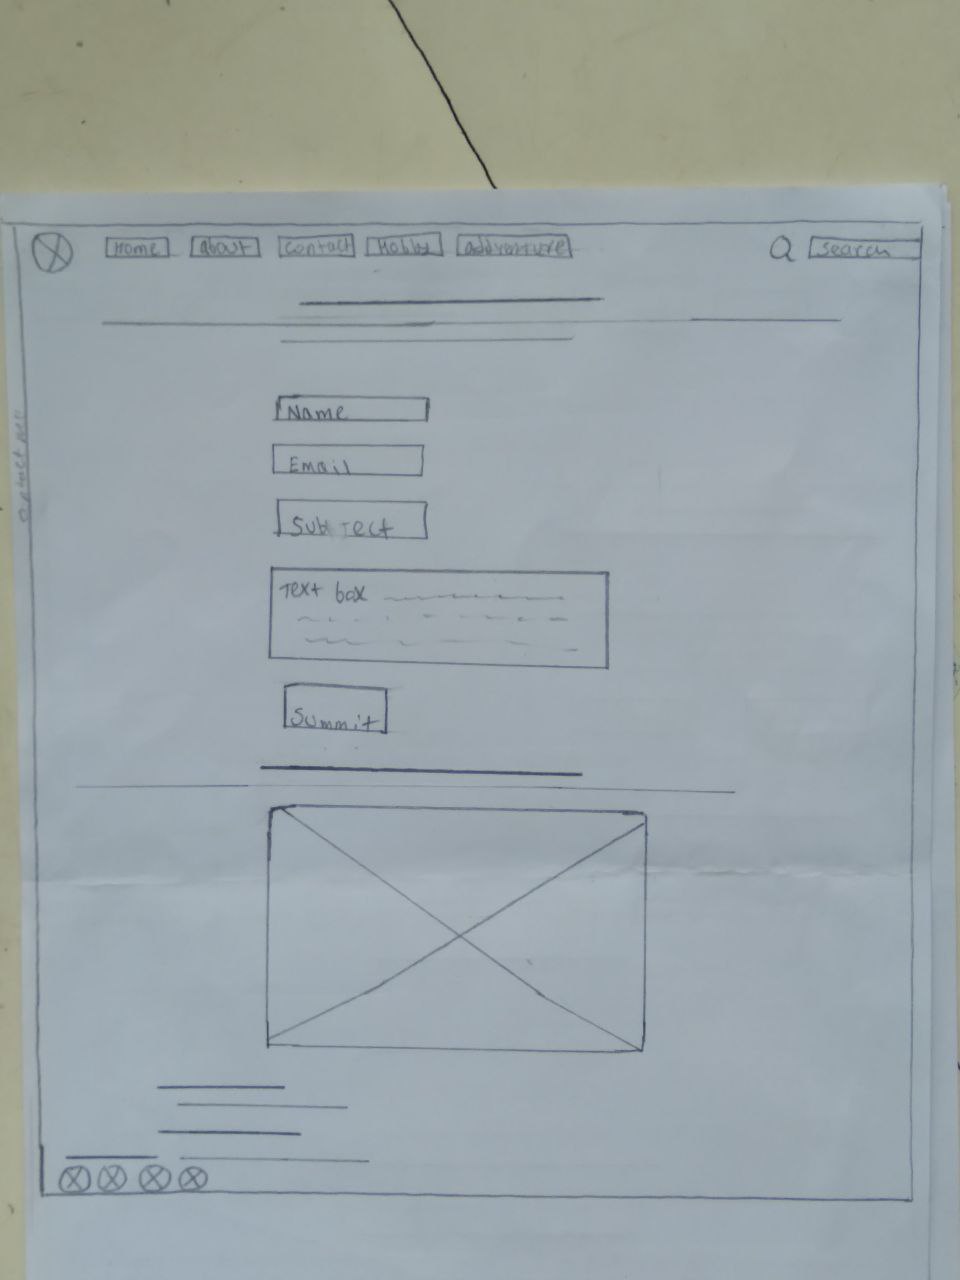 Home about contact Hobby addventure search
Name
Email
Subject
Text box
Summit